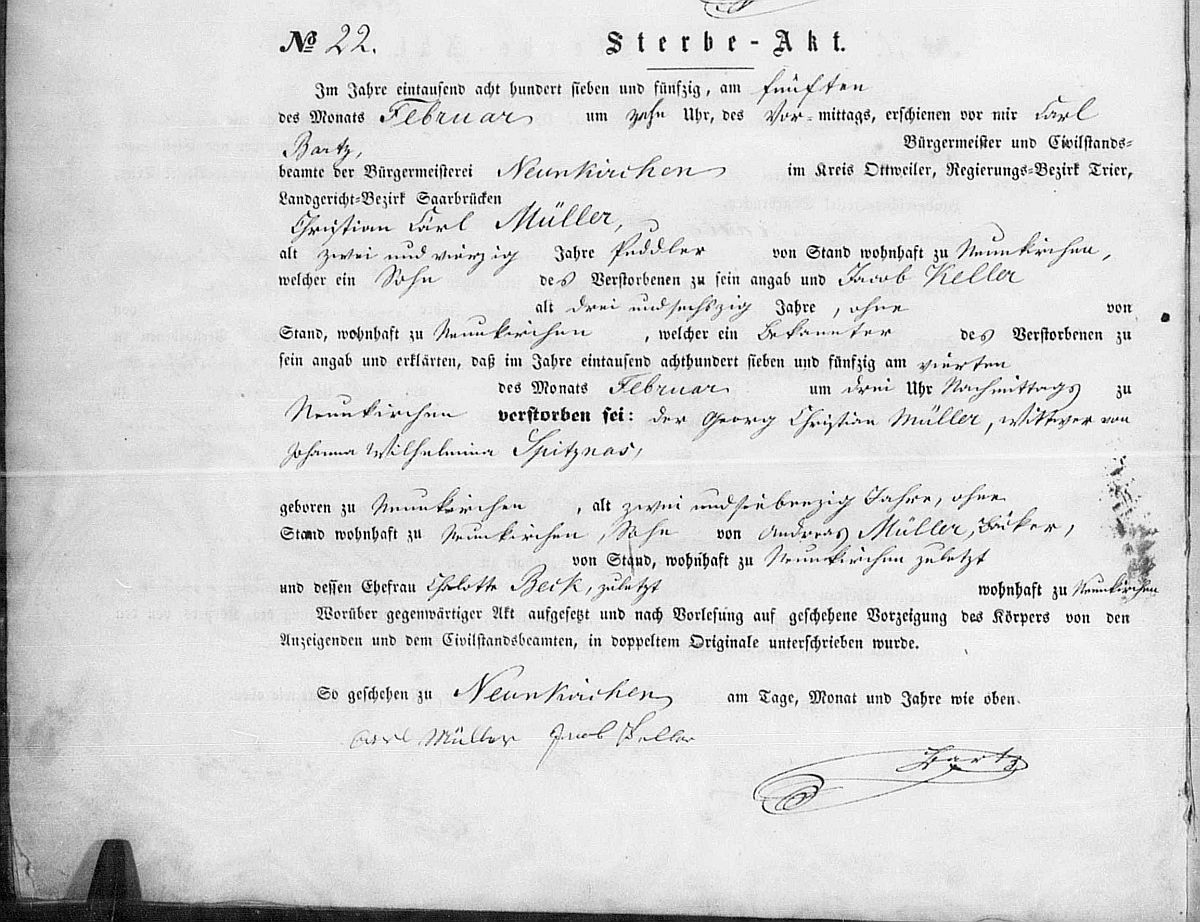 № 22. Sterbe-Akt.
Im Jahre eintausend acht hundert sieben und fünfzig, am fünften
des Monats Februar um zehn Uhr, des Vor-mittags, erschienen vor mir Carl
Bartz, Bürgermeister und Civilstands-
beamte der Bürgermeisterei Neunkirchen im Kreis Ottweiler, Regierungs-Bezirk Trier,
Landgericht-Bezirk Saarbrücken
Christian Carl Müller,
alt zwei und vierzig Jahre Puddler von Stand wohnhaft zu Neunkirchen,
welcher ein Sohn des Verstorbenen zu sein angab und Jacob Keller
alt drei und sechszig Jahre, ohne von
Stand, wohnhaft zu Neunkirchen, welcher ein Bekannter des Verstorbenen zu
sein angab und erklärten, daß im Jahre eintausend achthundert sieben und fünfzig am vierten
des Monats Februar um drei Uhr Nachmittags zu
Neunkirchen verstorben sei: der Georg Christian Müller, Wittwer von
Johanna Wilhelmina Spitznas,
geboren zu Neunkirchen, alt zwei und siebenzig Jahre, ohne
Stand wohnhaft zu Neunkirchen, Sohn von Andreas Müller, Bäcker,
von Stand, wohnhaft zu Neunkirchen zuletzt
und dessen Ehefrau Charlotte Beck, zuletzt wohnhaft zu Neunkirchen
Worüber gegenwärtiger Akt aufgesetzt und nach Vorlesung auf geschehene Vorzeigung des Körpers von den
Anzeigenden und dem Civilstandsbeamten, in doppeltem Originale unterschrieben wurde.
So geschehen zu Neunkirchen am Tage, Monat und Jahre wie oben.
Carl Müller Jacob Keller
Bartz